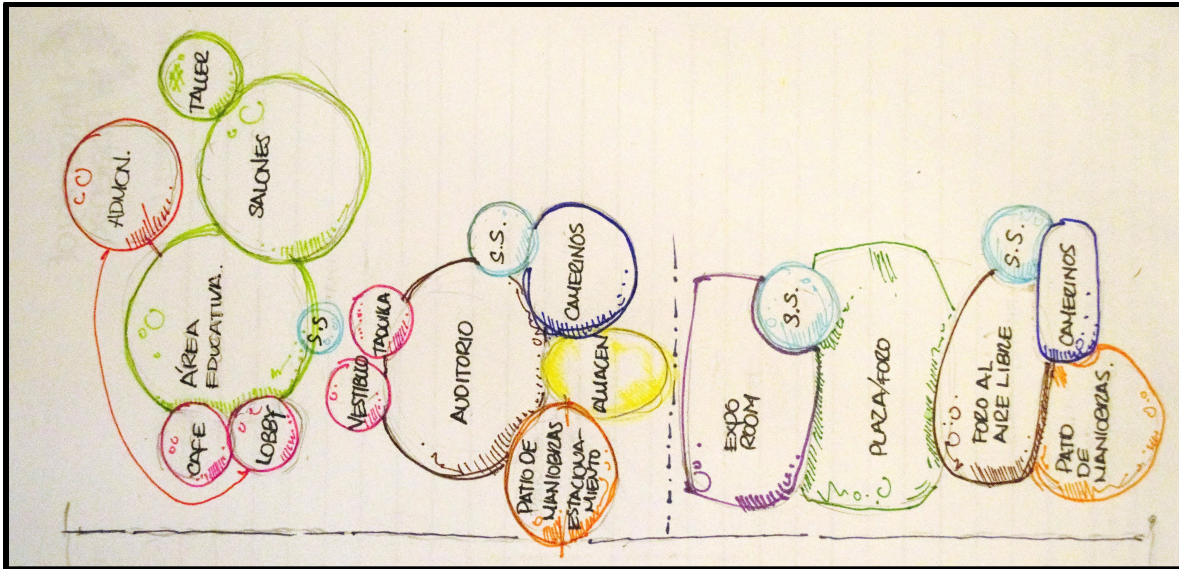 TALLER
ADMON.
SALONES
ÁREA
EDUCATIVA.
S.S
CAFE
LOBBY
TAQUILLA
VESTIBULO
AUDITORIO
S.S.
CAMERINOS
ALMACEN
PATIO DE
MANIOBRAS
ESTACIONA-
MIENTO
EXPO
ROOM
S.S.
PLAZA/FORO
FORO AL
AIRE LIBRE
S.S.
CAMERINOS
PATIO
DE
MANIOBRAS.